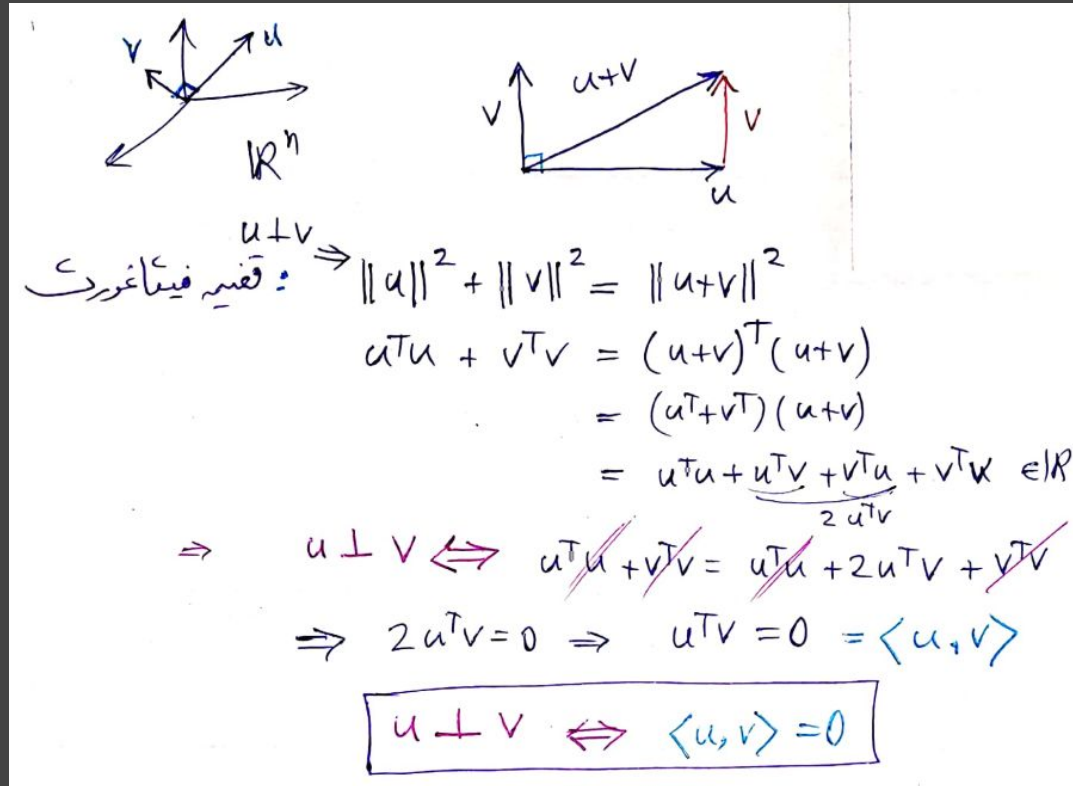 v u
ℝⁿ
v u+v v
u
u⊥v ⇒
قضیه فیثاغورث : ‖u‖² + ‖v‖² = ‖u+v‖²
uᵀu + vᵀv = (u+v)ᵀ(u+v)
= (uᵀ+vᵀ)(u+v)
= uᵀu + uᵀv + vᵀu + vᵀv ∈ℝ
2uᵀv
⇒ u ⊥ v ⇔ uᵀu + vᵀv = uᵀu + 2uᵀv + vᵀv
⇒ 2uᵀv = 0 ⇒ uᵀv = 0 = <u, v>
u ⊥ v ⇔ <u, v> = 0